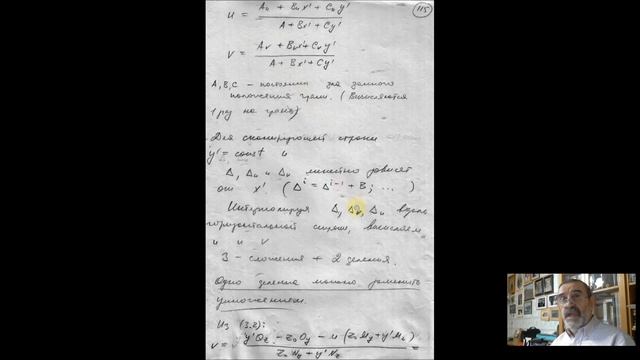 115
u = (A_u + B_u x' + C_u y') / (A + Bx' + Cy')
v = (A_v + B_v x' + C_v y') / (A + Bx' + Cy')
A, B, C – постоянны для данного
положения грани. (Вычисляются
1 раз на грань)
Для сканирующей строки
y' = const и
Δ, Δ_u и Δ_v линейно зависят
от x'. (Δ^i = Δ^{i-1} + B; ...)
Интерполируя Δ, Δ_v, Δ_u вдоль
горизонтальной строки, вычисляем
u и v
3 – сложения + 2 деления.
Одно деление можно заменить
умножением.
Из (3.2):